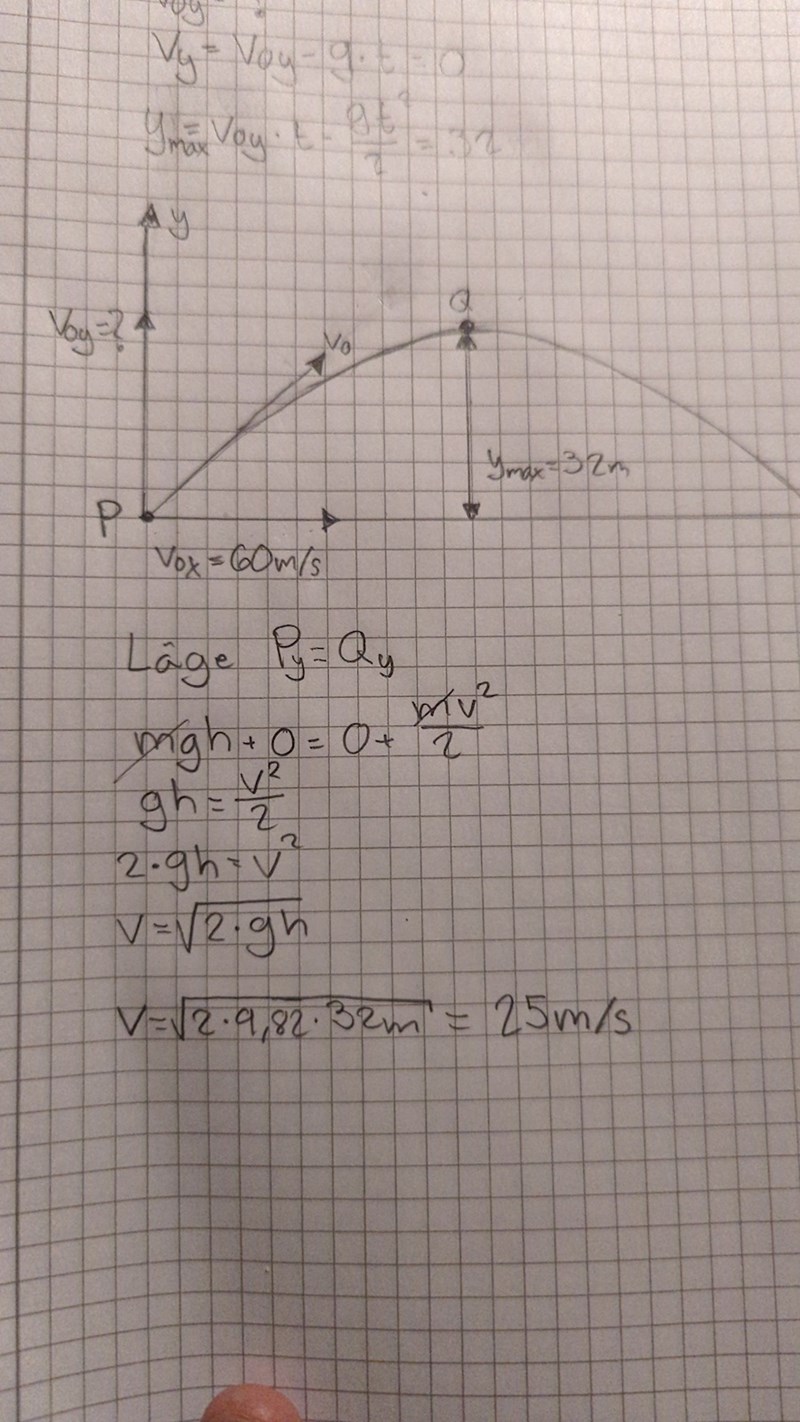 Vy = Voy - g·t = 0
ymax = Voy·t - gt²/2 = 32
y
Q
Voy=?
Vo
ymax=32m
P
Vox = 60m/s
Läge Py = Qy
mgh + 0 = 0 + mv²/2
gh = v²/2
2·gh = v²
V = √2·gh
V = √2·9,82·32m = 25m/s